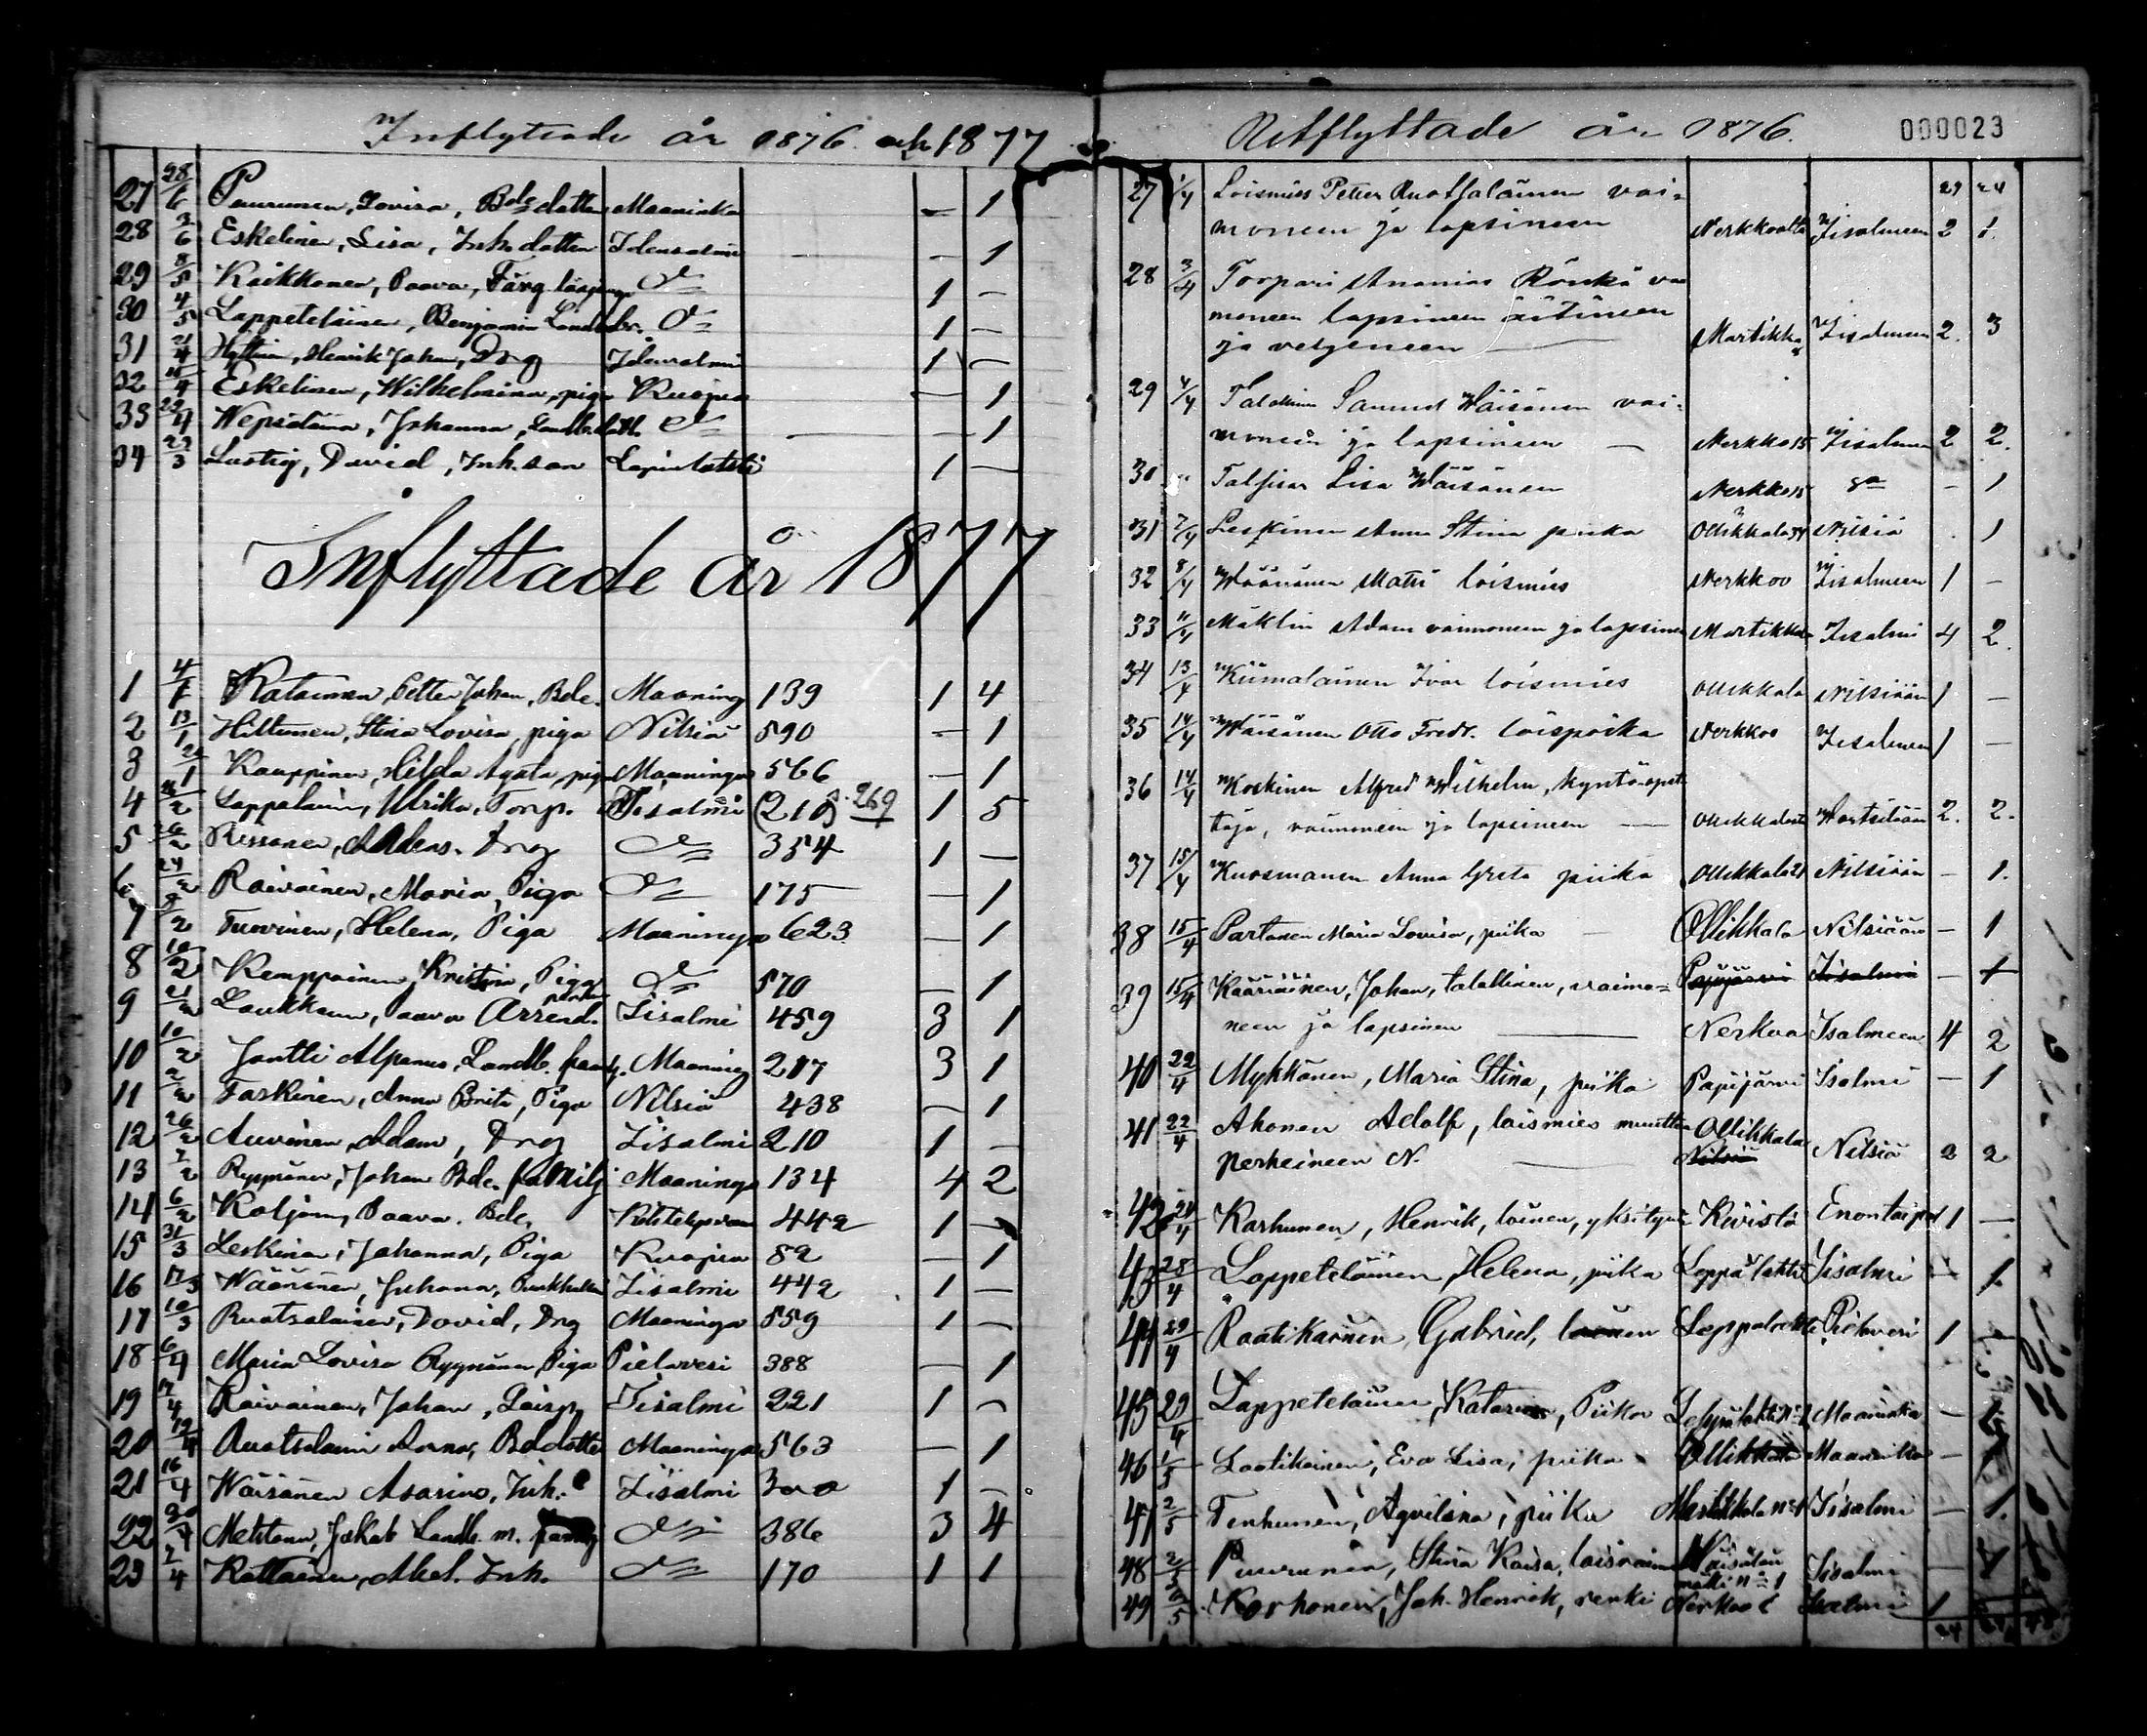 Inflyttade år 1876 och 1877
27 28/6 Puurunen, Lovisa, Bdedotter Maaninka — 1
28 3/6 Eskelinen, Lisa, Inh. dotter Idensalmi — — 1
29 8/5 Koikkonen, Paava, Färg lärjunge d:o 1 —
30 4/5 Lappeteläinen, Benjamin Landb. d:o 1 —
31 21/4 Henrik Johan, Drg Idensalmi 1 —
32 10/4 Eskelinen, Wilhelmina, piga Kuopio — 1
33 29/4 Wepsäläinen, Johanna, Landb. dott. d:o — — 1
34 22/3 Lustig, David, Inh. son Lapinlahti 1 —
Inflyttade år 1877
1 4/1 Ratainen, Petter Johan, Bde. Maaning 139 1 4
2 13/1 Hiltunen, Stina Lovisa, piga Nilsiä 590 — 1
3 24/1 Kauppinen, Hilda Agata, piga Maaninga 566 — 1
4 Lappalainen, Ulrika, Torp. Iisalmi (210) s. 269 1 5
5 26/2 Ressonen, Drg d:o 354 1 —
6 24/2 Raivainen, Maria, Piga d:o 175 — 1
7 2 Tuovinen, Helena, Piga Maaninga 623 — 1
8 10/2 Kemppainen, Kristina, Piga d:o 570 — 1
9 21/2 Laukkanen, Paavo Arrend. Iisalmi 459 3 1
10 10/2 Jantti Alpanus, Landb. familj. Maaning 217 3 1
11 2/2 Taskinen, Anna Brita, Piga Nilsiä 438 — 1
12 26/2 Auvinen, Adam, Drg Iisalmi 210 1 —
13 7/2 Ryynänen, Johan Bde. familj Maaninga 134 4 2
14 6/2 Koljonen, Paava. Bde. 442 1 —
15 31/3 Leskinen, Johanna, Piga Kuopio 82 — 1
16 17/3 Wäänänen, Juhana, Iisalmi 442 1 —
17 10/3 Ruotsalainen, David, Drg Maaninga 559 1 —
18 6/4 Maria Lovisa Ryynänen, Piga Pielavesi 388 — 1
19 17/4 Raivainen, Johan, Loisp. Iisalmi 221 1 —
20 19/4 Ruotsalain Anna, Bdedotter Maaninga 563 — 1
21 16/4 Wäisänen Asarias, Inh. Iisalmi 300 1 —
22 20/4 Mehtonen, Jakob Landb. m. familj d:o 386 3 4
23 7/4 Rattainen, Abel. Inh. d:o 170 1 1
Utflyttade år 1876. 000023
29 24
27 1/4 Loismies Petter Ruotsalainen vai-
moneen ja lapsineen Nerkkoolta Iisalmeen 2 1.
28 3/4 Torpari Ananias Rönkä vai
moneen lapsineen äitineen
ja veljeneen — Martikka Iisalmeen 2. 3
29 4/4 Talollinen Samuel Wäisänen vai-
moneen ja lapsineen — Nerkko 15 Iisalmeen 2 2.
30 " Lisa Wäisänen Nerkko 15 — 1
31 7/4 Leskinen Anna Stina piika Ollikkala Nilsiä . 1
32 8/4 Wäänänen Matti loismies Nerkkoo Iisalmeen 1 —
33 11/4 Mäklin Adam vaimoneen ja lapsineen Martikkala Iisalmi 4 2.
34 13/4 Kiimalainen Ivar loismies Ollikkala Nilsiään 1 —
35 14/4 Wäisänen Otto Fredr. loispoika Nerkkoo Iisalmeen 1 —
36 14/4 Koskinen Alfred Wilhelm, kyntö-opet-
taja, vaimoneen ja lapsineen — Ollikkalasta Wärtsilään 2. 2.
37 15/4 Kuosmanen Anna Greta piika Ollikkala 21 Nilsiään — 1.
38 15/4 Partanen Maria Lovisa, piika — Ollikkala Nilsiään — 1
39 15/4 Kääriäinen, Johan, talollinen, vaimo= Papijärvi Iisalmi — 1
neen ja lapsinen — Nerkoo Isalmeen 4 2
40 22/4 Mykkänen, Maria Stina, piika Papijärvi Isalmi — 1
41 22/4 Ahonen Adolf, loismies muutta Ollikkala
perheineen N. — Nilsiä Nilsiä 2 2
42 24/4 Karhunen, Henrik, loinen, yksityin Kivistö 1 —
43 28/4 Lappeteläinen, Helena, piika Leppälahti Iisalmi — 1
44 29/4 Raatikainen, Gabriel, loinen Leppälahti Pielavesi 1
45 29/4 Lappeteläinen, Katarina, Piika Leppälahti Maaninka — 1
46 1/5 Laatikainen, Eva Lisa, piika Ollikkala Maaninka — 1
47 2/5 Tenhunen, Aqvilina, piika Iisalmi — 1.
48 2/5 Puurunen, Stina Kaisa, loisvaimo Iisalmi — 1
49 Korhonen, Joh. Henrik, renki Nerkoo Isalmi 1
24